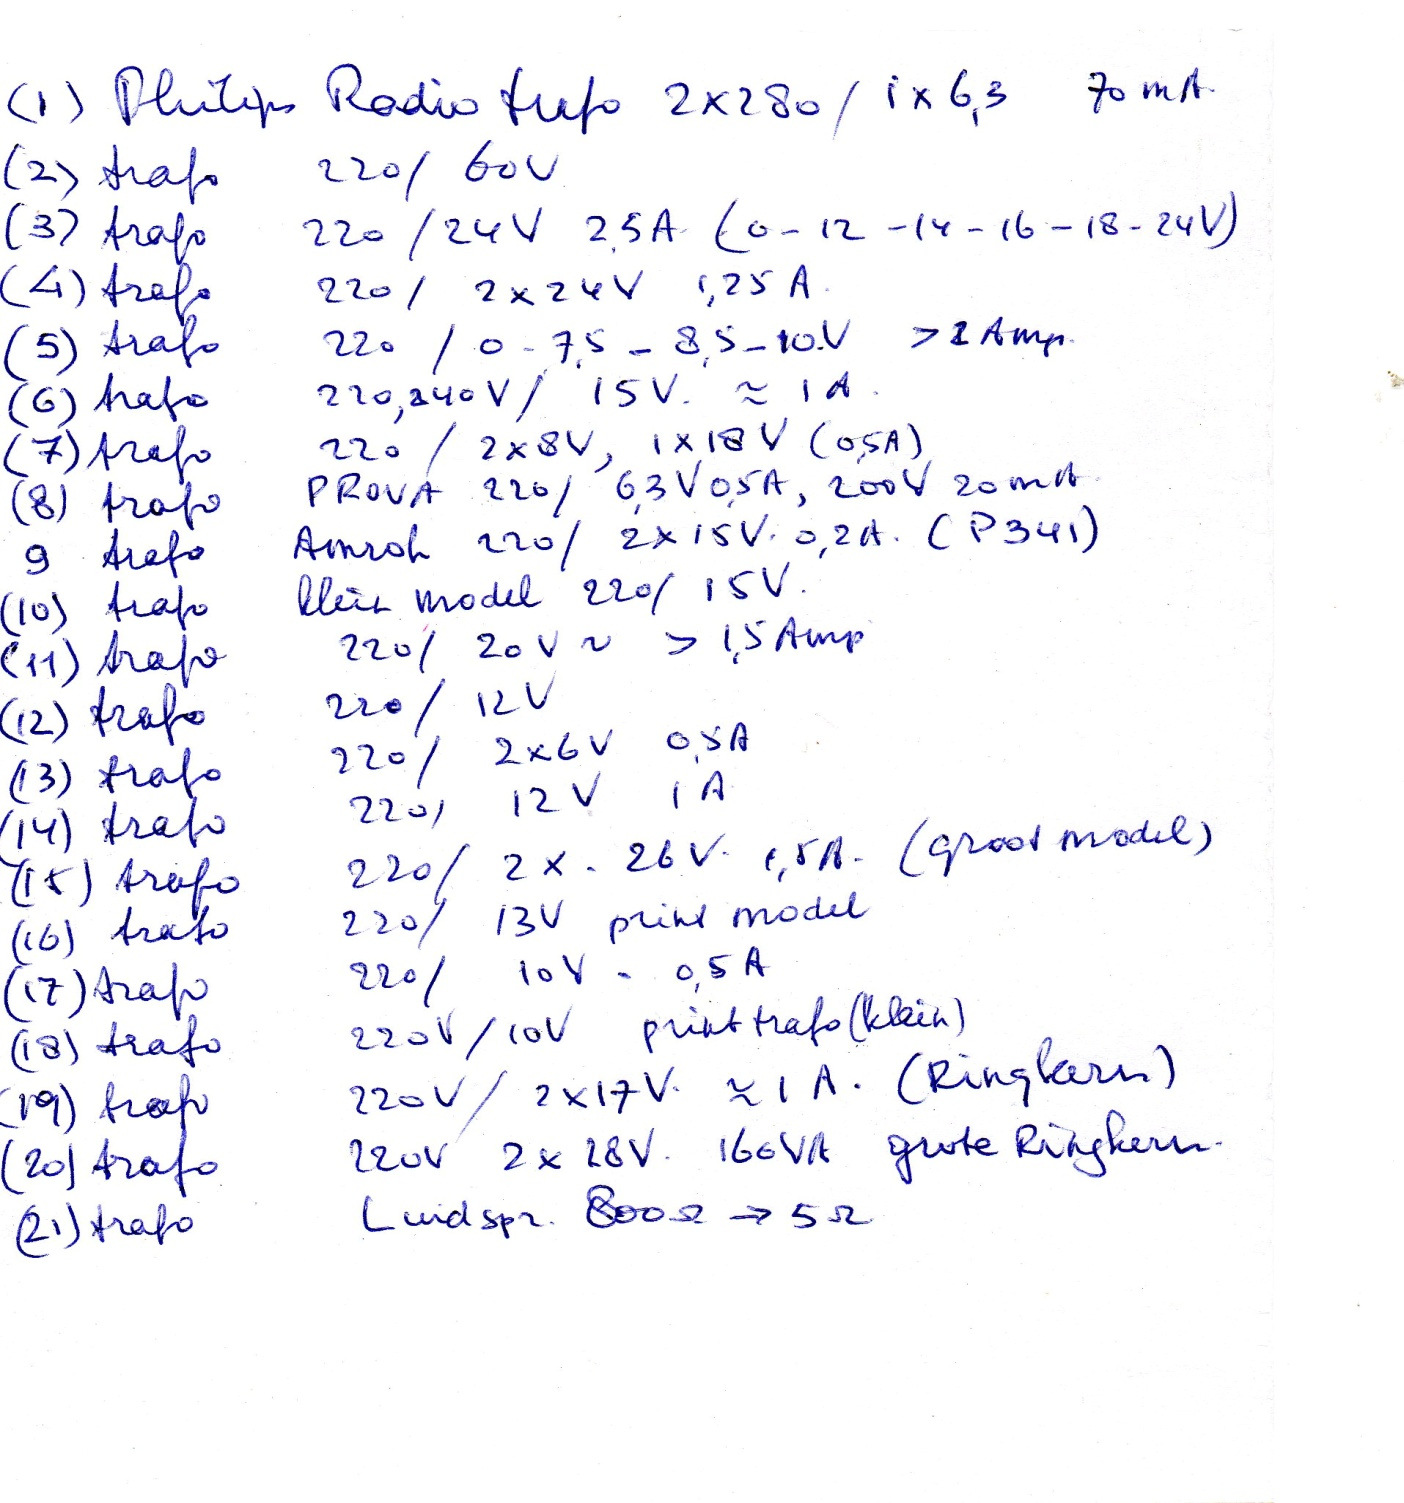 (1) Philips Radio trafo 2x280/ 1x6,3 70mA.
(2) trafo 220/ 60V
(3) trafo 220 /24V 2,5A (0-12-14-16-18-24V)
(4) trafo 220/ 2x24V 1,25A.
(5) trafo 220 / 0-7,5-8,5-10V >1 Amp.
(6) trafo 220,240V/ 15V. ≈ 1A.
(7) trafo 220 / 2x8V, 1x18V (0,5A)
(8) trafo PROVA 220/ 6,3V 0,5A, 200V 20mA.
9 trafo Amroh 220/ 2x15V. 0,2A. (P341)
(10) trafo klein model 220/ 15V.
(11) trafo 220/ 20V ~ > 1,5Amp
(12) trafo 220/ 12V
(13) trafo 220/ 2x6V 0,5A
(14) trafo 220/ 12V 1A
(15) trafo 220/ 2x. 26V. 1,5A. (groot model)
(16) trafo 220/ 13V print model
(17) trafo 220/ 10V - 0,5A
(18) trafo 220V/10V print trafo (klein)
(19) trafo 220V/ 2x17V. ≈ 1A. (Ringkern)
(20) trafo 220V 2x18V. 160VA grote Ringkern.
(21) trafo Luidspr. 800Ω → 5Ω